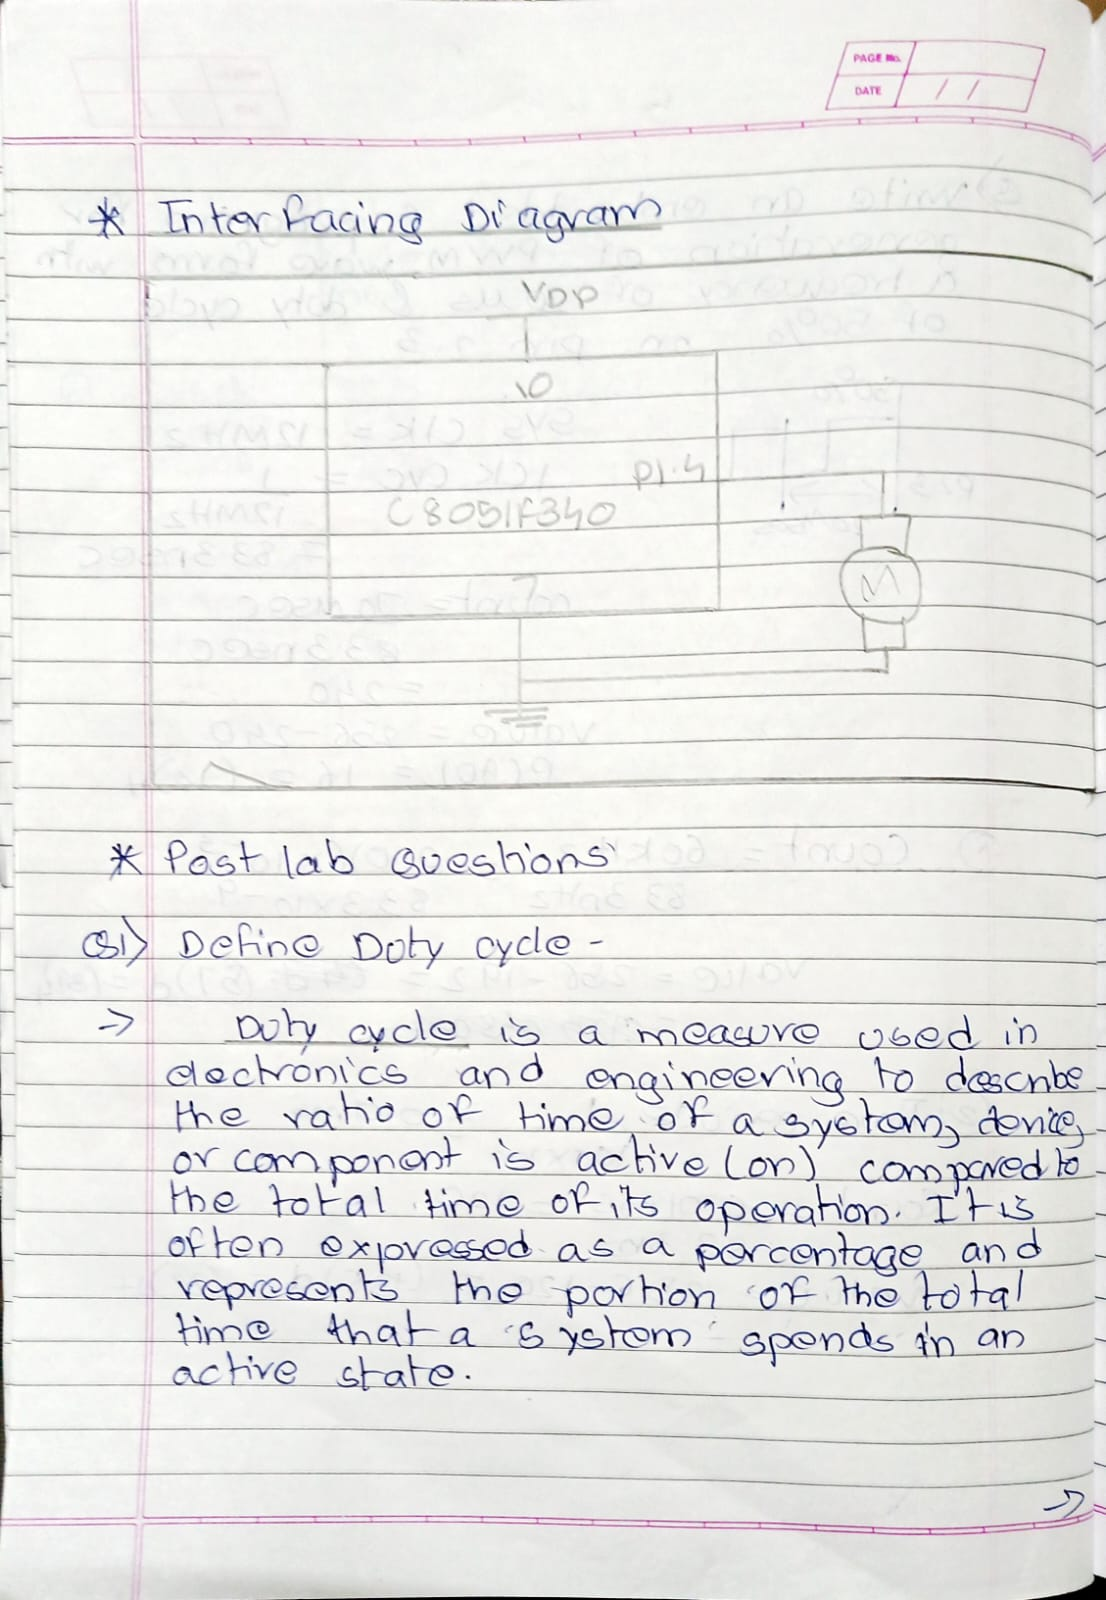 PAGE No.
DATE / /
* Interfacing Diagram
VDD
10
P1.4
C8051F340
7
M
* Post lab Questions
Q1) Define Duty cycle -
-> Duty cycle is a measure used in
electronics and engineering to describe
the ratio of time of a system, device,
or component is active (on) compared to
the total time of its operation. It is
often expressed as a percentage and
represents the portion of the total
time that a system spends in an
active state.
->